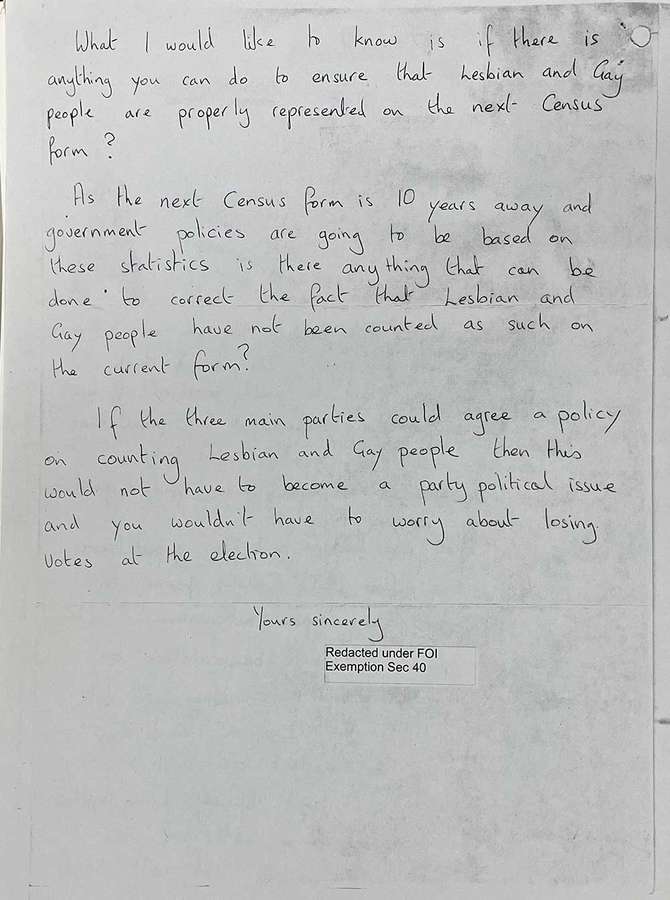 What I would like to know is if there is
anything you can do to ensure that Lesbian and Gay
people are properly represented on the next Census
form?
As the next Census form is 10 years away and
government policies are going to be based on
these statistics is there anything that can be
done to correct the fact that Lesbian and
Gay people have not been counted as such on
the current form?
If the three main parties could agree a policy
on counting Lesbian and Gay people then this
would not have to become a party political issue
and you wouldn't have to worry about losing
votes at the election.
Yours sincerely
Redacted under FOI
Exemption Sec 40